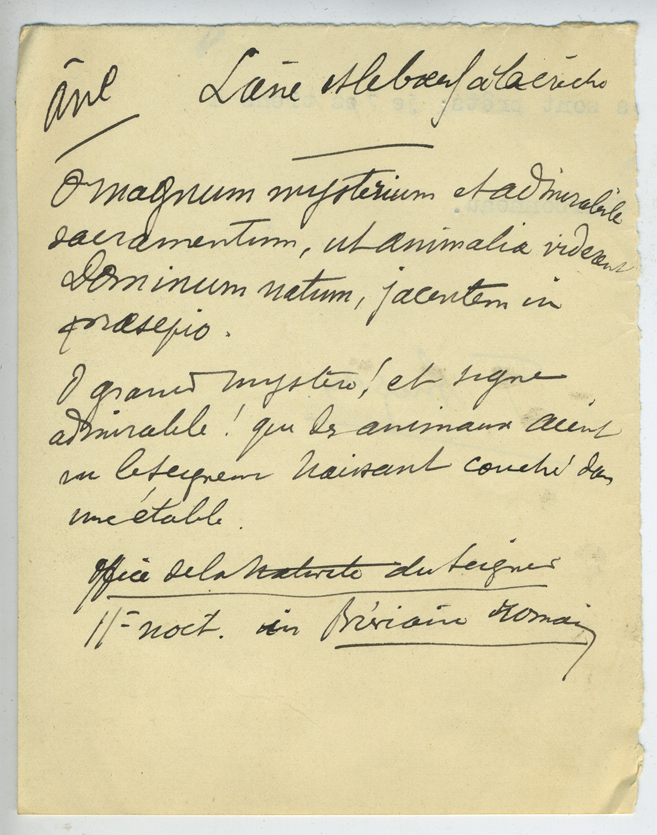 âne
L'âne et le bœuf à la crèche
O magnum mysterium et admirabile
sacramentum, ut animalia viderent
Dominum natum, jacentem in
præsepio.
O grand mystère! et signe
admirable! que des animaux aient
vu le Seigneur naissant couché dans
une étable.
Office de la Nativité du Seigneur
IIe noct. in Bréviaire romain